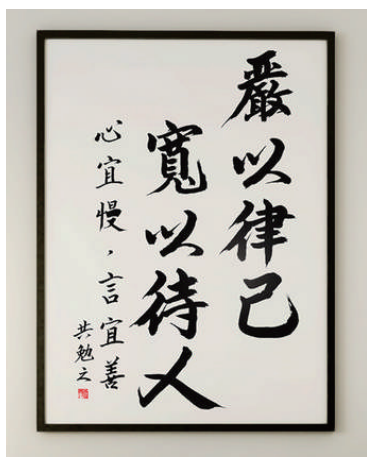 嚴以律己
寬以待人
心宜慢，言宜善
共勉之